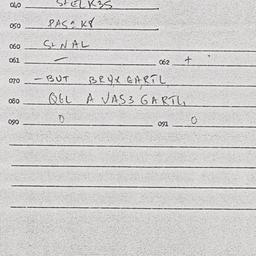 040
050 PAS2K8
060 SENAL
061 – 062 +
070 – BUT BRYX GARTL
080 QEL A VAS3 GARTL
090 0 091 0